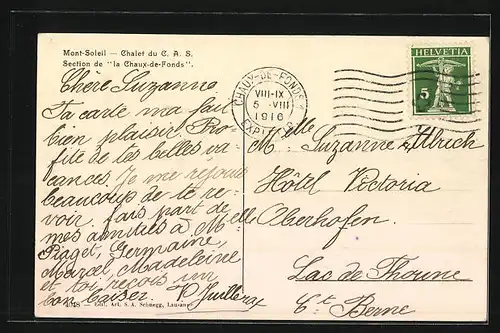 Mont-Soleil — Chalet du C. A. S.
Section de "la Chaux-de-Fonds".
Chère Suzanne
Ta carte ma fait
bien plaisir. Pro-
fite de tes belles va-
cances. Je me réjouis
beaucoup de te re-
voir. fais part de
mes amitiés à Melle
Piaget, Germaine,
Marcel, Madeleine
et toi, reçois un
bon baiser. Juillerat
4048 — Edit. Art. S. A. Schnegg, Lausanne
CHAUX-DE-FONDS
VIII-IX
5 · VIII
1916
HELVETIA
5
Melle Suzanne Ullrich
Hôtel Victoria
Oberhofen
Lac de Thoune
Ct. Berne